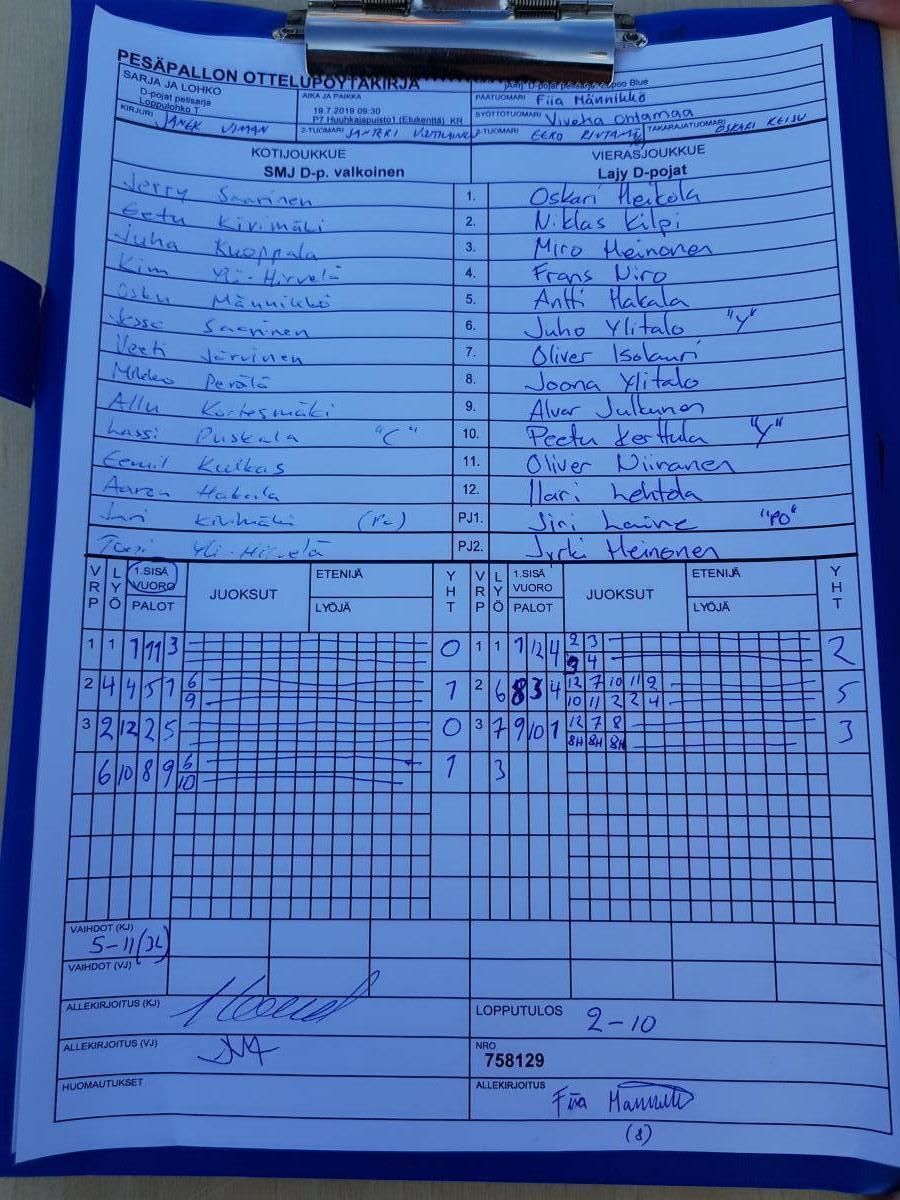 PESÄPALLON OTTELUPÖYTÄKIRJA
SARJA JA LOHKO
D-pojat pelisarja
Loppulohko T
AIKA JA PAIKKA
19.7.2019 09:30
P7 Huuhkajapuisto1 (Etukenttä) KR
D-pojat pelisarja, Lupoo Blue
PÄÄTUOMARI Fiia Männikkö
SYÖTTÖTUOMARI Ohtamaa
KIRJURI JANEK VIMAN
2-TUOMARI SANTERI
2-TUOMARI EERO
TAKARAJATUOMARI OSKARI KEISU
KOTIJOUKKUE
SMJ D-p. valkoinen
VIERASJOUKKUE
Lajy D-pojat
Jerry Saarinen 1. Oskari Heikola
Eetu Kivimäki 2. Niklas Kilpi
Juha Kuoppala 3. Miro Heinonen
Kim Yli-Hirvelä 4. Frans Niro
Osku Männikkö 5. Antti Hakala
Jesse Saarinen 6. Juho Ylitalo "Y"
Veeti Järvinen 7. Oliver Isolauri
Mikko Perälä 8. Joona Ylitalo
Allu Kortesmäki 9. Alvar Julkunen
Lassi Puskala "C" 10. Peetu Kerttula "Y"
Eemil Kulkas 11. Oliver Niiranen
Aaron Hakala 12. Ilari Lehtola
Jari Kivimäki PJ1. Jiri Laine "PO"
Yli-Hirvelä PJ2. Jyrki Heinonen
VRP LYÖ 1.SISÄ VUORO PALOT JUOKSUT ETENIJÄ LYÖJÄ YHT VRP LYÖ 1.SISÄ VUORO PALOT JUOKSUT ETENIJÄ LYÖJÄ YHT
1 1 1 11 3 0 1 1 1 12 4 2 3 2
9 4
2 4 4 5 1 6 1 2 6 8 3 4 12 7 10 11 2 5
9 10 11 2 2 4
3 2 12 2 5 0 3 7 9 10 1 12 7 8 3
8H 8H 8H
6 10 8 9 6 1 3
10
VAIHDOT (KJ)
5-11(3L)
VAIHDOT (VJ)
ALLEKIRJOITUS (KJ)
LOPPUTULOS 2-10
ALLEKIRJOITUS (VJ)
NRO
758129
HUOMAUTUKSET
ALLEKIRJOITUS
Fiia
(8)